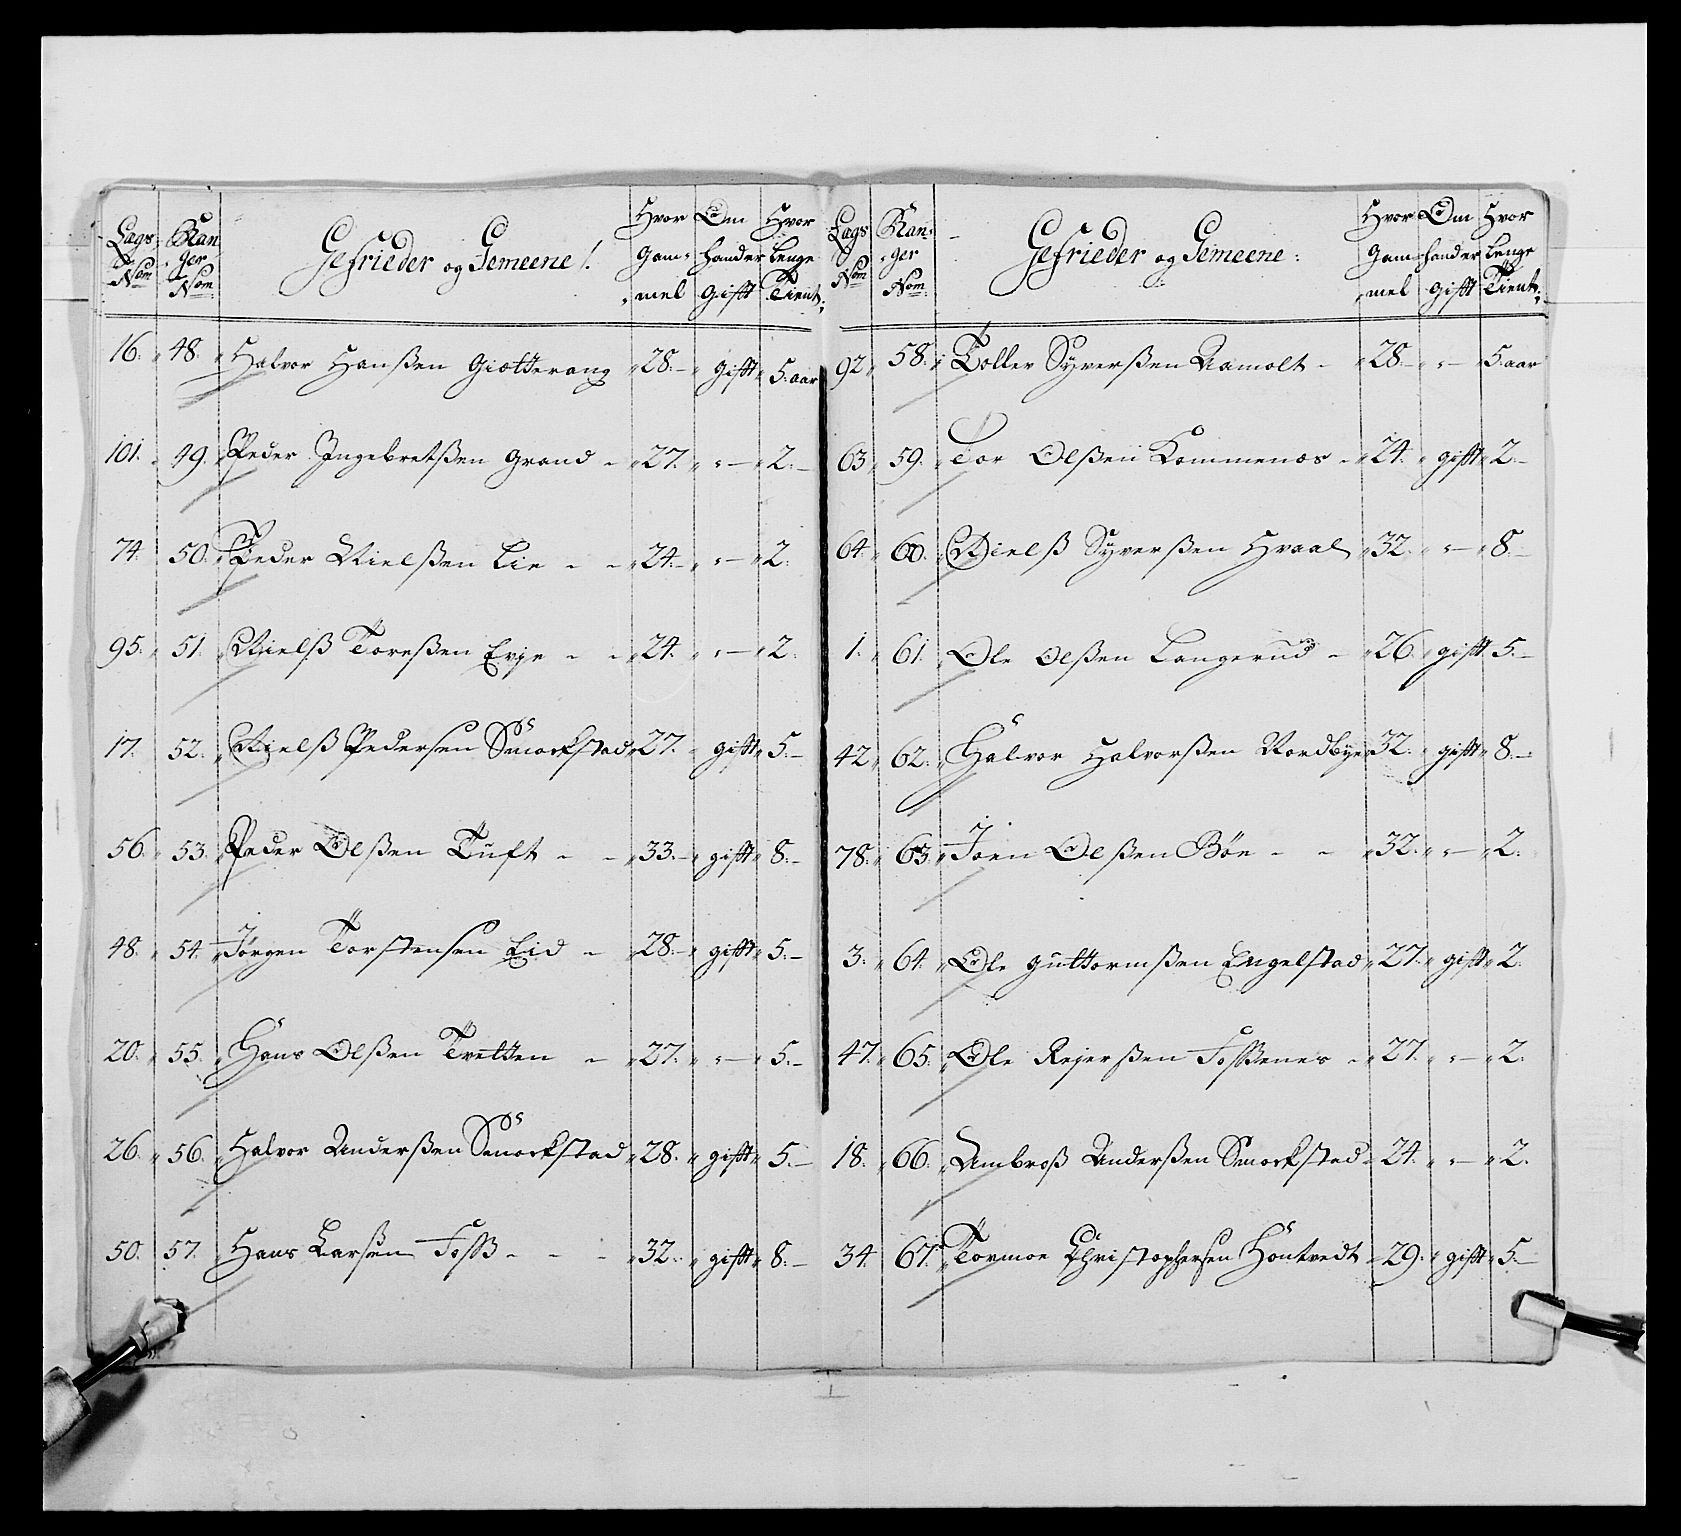 Lags Nom: Ranger Nom: Gefrieder og Gemeene /. Hvor Gammel Om hand er Gifft Hvor lenge Tient:
16. 48. Halvor Hanßen Giøtterang 28. gifft 5. aar
101. 49. Peder Ingebretßen Grand 27. - 2.
74. 50. Peder Nielßen Lie 24. - 2.
95. 51. Nielß Toreßen Evje 24. - 2.
17. 52. Nielß Pedersen Smørkstad 27. gifft 5.
56. 53. Peder Olßen Tuft 33. gifft 8.
48. 54. Jørgen Torstensen Eid 28. gifft 5.
20. 55. Hans Olßen Tvetten 27. - 5.
26. 56. Halvor Anderßen Smørkstad 28. gifft 5.
50. 57. Hans Larsen Foss 32. gifft 8.
Lags Nom Ranger Nom: Gefrieder og Gemeene: Hvor Gammel Om hand er Gifft Hvor lenge Tient:
92. 58. Tollev Syverßen Aamolt 28. - 5. aar
63. 59. Tor Olßen Kommenæs 24. gifft 2.
64. 60. Nielß Syverßen Hvaal 32. - 8.
1. 61. Ole Olßen Langerud 26. gifft 5.
42. 62. Halvor Halvorßen Nordbye 32. gifft 8.
78. 63. Joen Olßen Bøe 32. - 2.
3. 64. Ole Guttormßen Engelstad 27. gifft 2.
47. 65. Ole Rejerßen Fossenes 27. - 2.
18. 66. Ambroß Anderßen Smørkstad 24. - 2.
34. 67. Tormoe Christophersen Hontvedt 29. gifft 5.